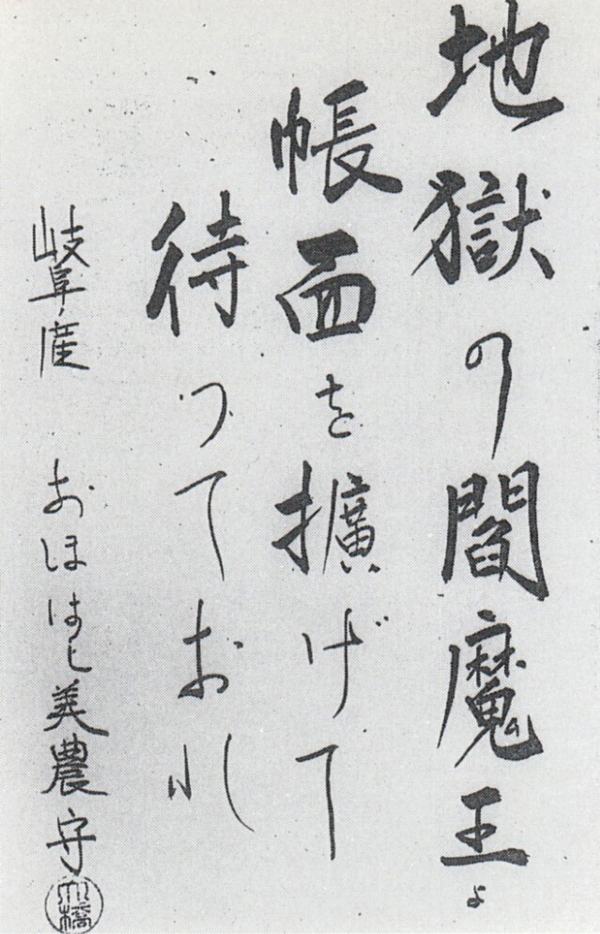 地獄の閻魔王よ
帳面を擴げて
待つておれ
岐阜産 おほはし美農守
大橋